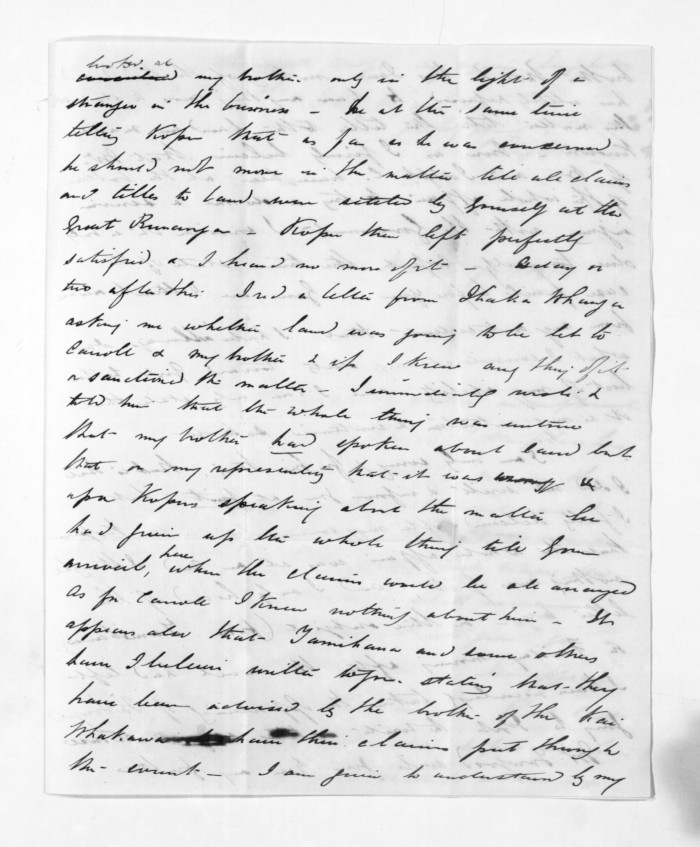 looked at
considered my brother only in the light of a
stranger in the business - he at the same time
telling Kopu that as far as he was concerned
he should not move in the matter till all claims
and titles to land were settled by yourself at the
Great Runanga - Kopu then left perfectly
satisfied & I heard no more of it - a day or
two after this I rcd a letter from Ihaka Whanga
asking me whether land was going to be let to
Carroll & my brother & if I knew any thing of it
or sanctioned the matter - I immediately wrote &
told him that the whole thing was untrue
that my brother had spoken about land but
that on my representing that it was wrong &
upon Kopus speaking about the matter he
had given up the whole thing till your
arrival, here when the claims would be all arranged
As for Carroll I knew nothing about him - It
appears also that Tamihana and some others
have I believe written to you stating that they
have been advised by the brother of the Kai
Whakawa to have their claims put through
the court - I am given to understand by my